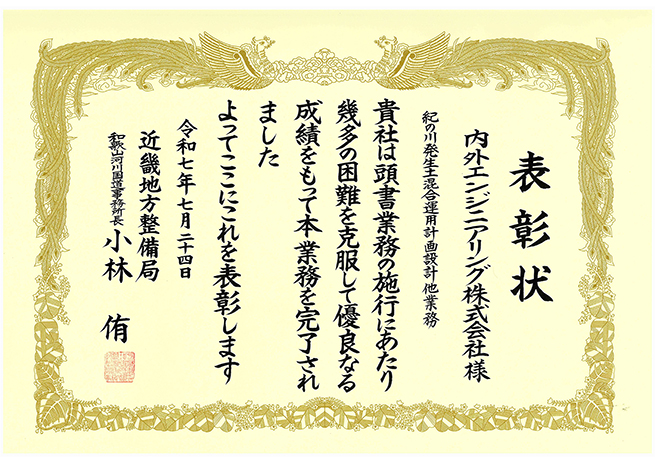 表彰状
内外エンジニアリング株式会社様
紀の川発生土混合運用計画設計他業務
貴社は頭書業務の施行にあたり
幾多の困難を克服して優良なる
成績をもって本業務を完了され
ました
よってここにこれを表彰します
令和七年七月二十四日
近畿地方整備局
和歌山河川国道事務所長 小林 侑